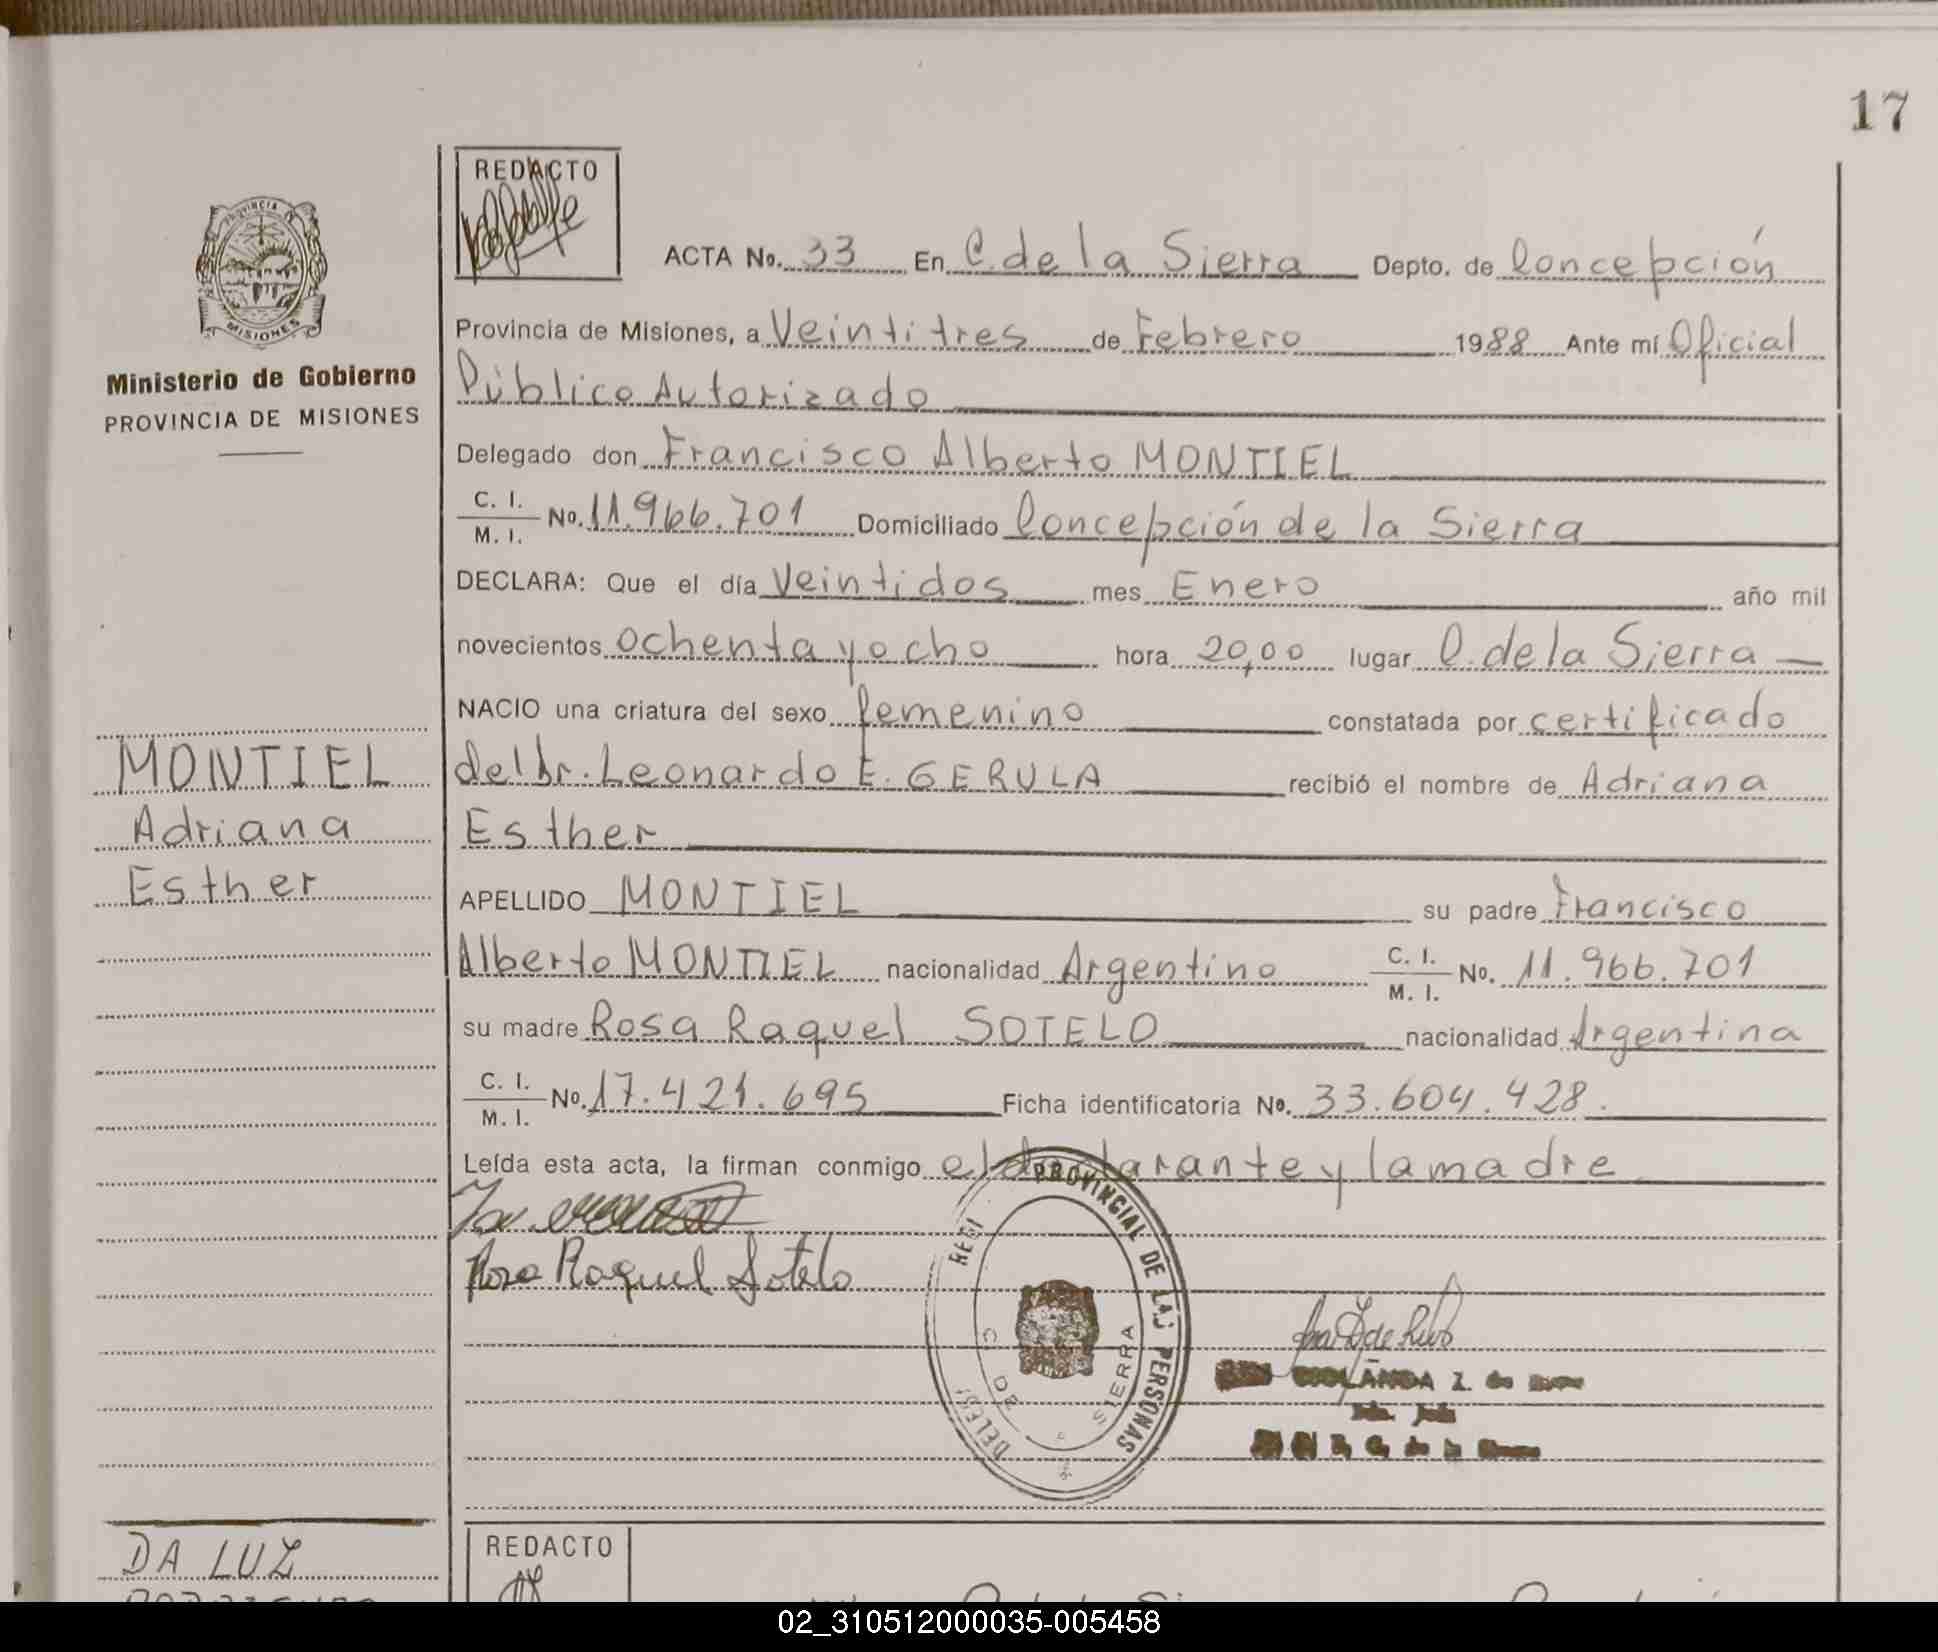 17
REDACTO
ACTA No. 33 En C. de la Sierra Depto. de Concepción
Provincia de Misiones, a Veintitres de Febrero 1988 Ante mí Oficial
Público Autorizado
Ministerio de Gobierno
PROVINCIA DE MISIONES
PROVINCIA DE
MISIONES
Delegado don Francisco Alberto MONTIEL
C. I.
M. I. No. 11.966.701 Domiciliado Concepción de la Sierra
DECLARA: Que el día Veintidos mes Enero año mil
novecientos ochenta y ocho hora 20,00 lugar C. de la Sierra
NACIO una criatura del sexo femenino constatada por certificado
del Dr. Leonardo E. GERULA recibió el nombre de Adriana
Esther
MONTIEL
Adriana
Esther
APELLIDO MONTIEL su padre Francisco
Alberto MONTIEL nacionalidad Argentino C. I. M. I. No. 11.966.701
su madre Rosa Raquel SOTELO nacionalidad Argentina
C. I.
M. I. No. 17.421.695 Ficha identificatoria No. 33.604.428.
Leída esta acta, la firman conmigo el declarante y la madre
Rosa Raquel Sotelo
PROVINCIAL DE LAS PERSONAS
SIERRA
DA LUZ
REDACTO
02_310512000035-005458